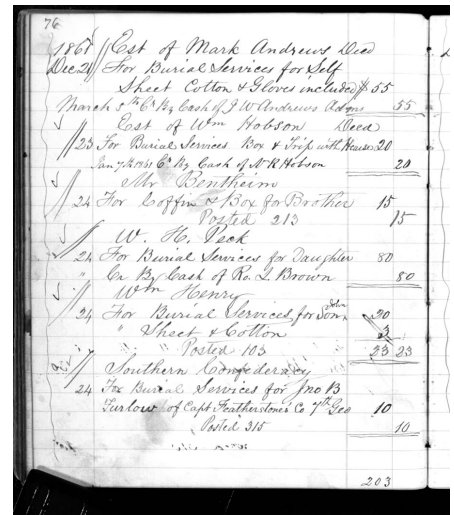 76
1861 Est of Mark Andrews Decd
Dec 21 For Burial Services for Self
Sheet Cotton & Gloves included $55
March 5th Cr By Cash of J W Andrews Admr 55
Est of Wm Hobson Decd
23 For Burial Services Box & Trip with Hearse 20
Jan 7th 1861 Cr By Cash of N R Hobson 20
Mr Bentheim
24 For Coffin & Box for Brother 15
Posted 213 15
W. H. Peck
24 For Burial Services for Daughter 80
" Cr By Cash of Ro. L. Brown 80
Wm Henry
24 For Burial Services for Son John 20
" Sheet & Cotton 3
Posted 103 23 23
Southern Confederacy
24 For Burial Services for Jno B
Turlow of Capt Featherstone's Co 7th Geo 10
Posted 315 10
203